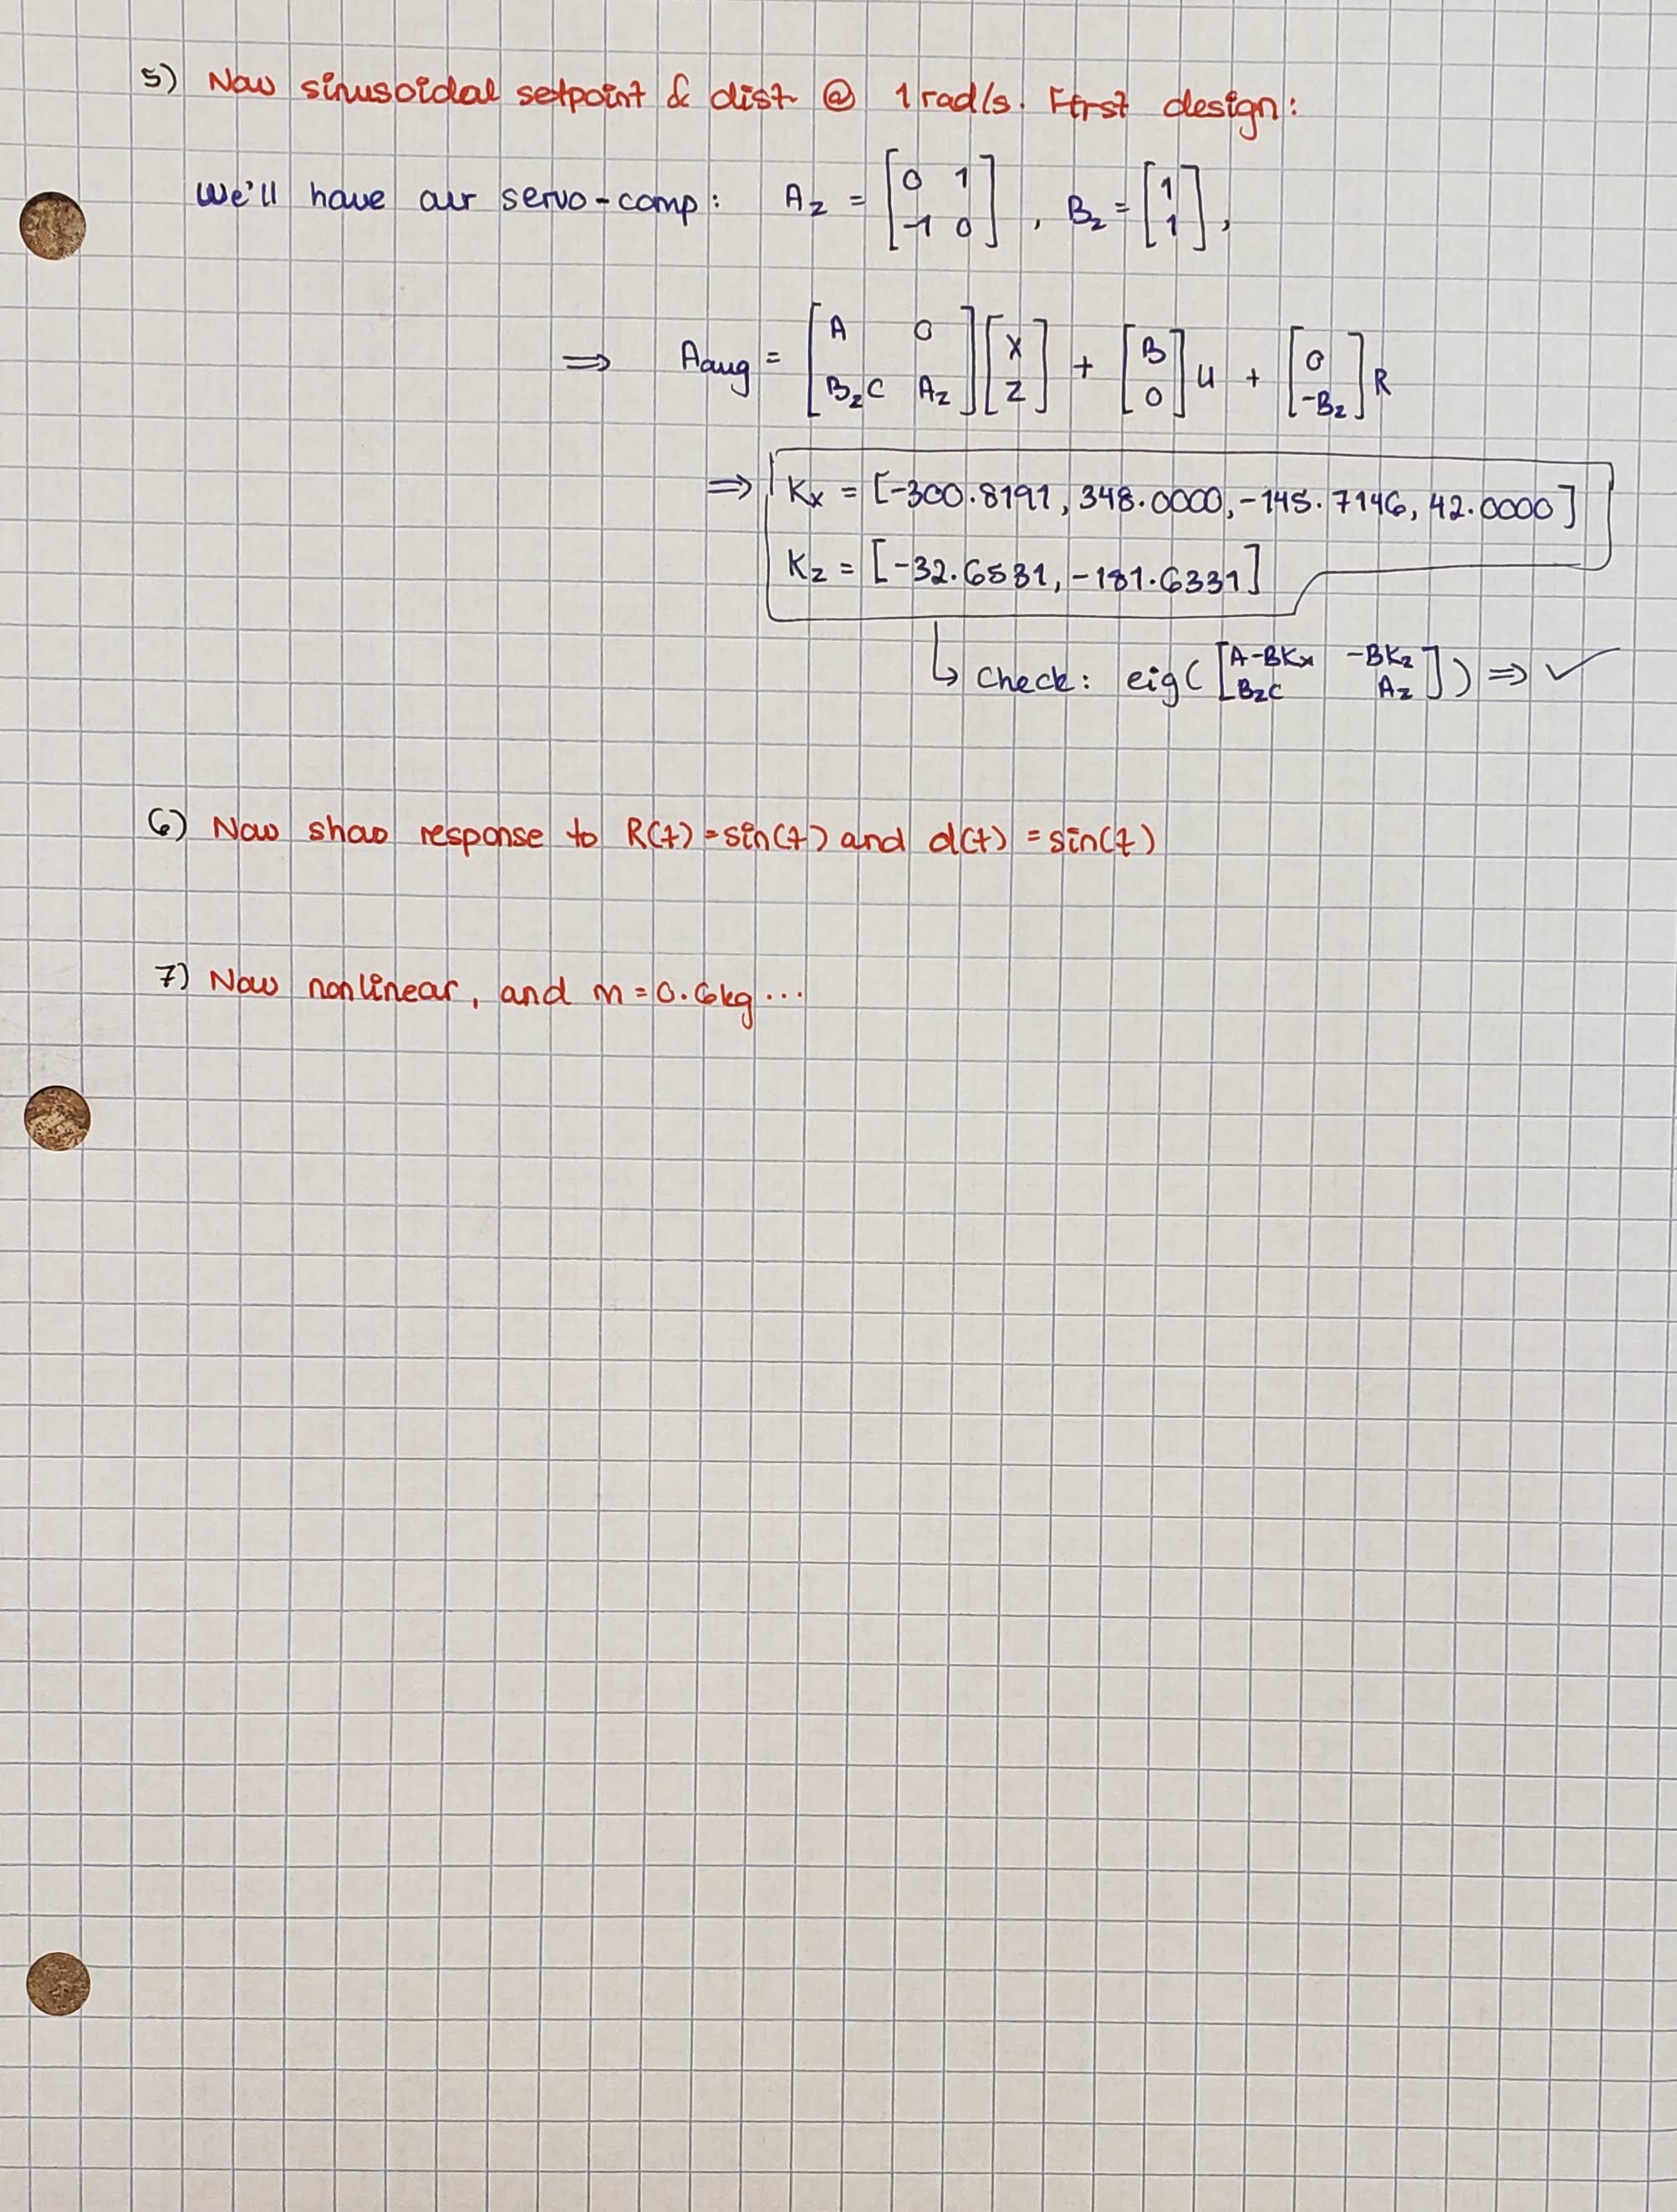 5) Now sinusoidal setpoint & dist @ 1 rad/s. First design:
We'll have our servo-comp: Az = [0 1; -1 0], Bz = [1; 1],
⇒ Aaug = [A 0; BzC Az][x; z] + [B; 0]u + [0; -Bz]R
⇒ Kx = [-300.8191, 348.0000, -145.7146, 42.0000]
Kz = [-32.6531, -181.6331]
↳ Check: eig([A-BKx -BKz; BzC Az]) ⇒ ✓
6) Now show response to R(t) = sin(t) and d(t) = sin(t)
7) Now nonlinear, and m = 0.6kg...